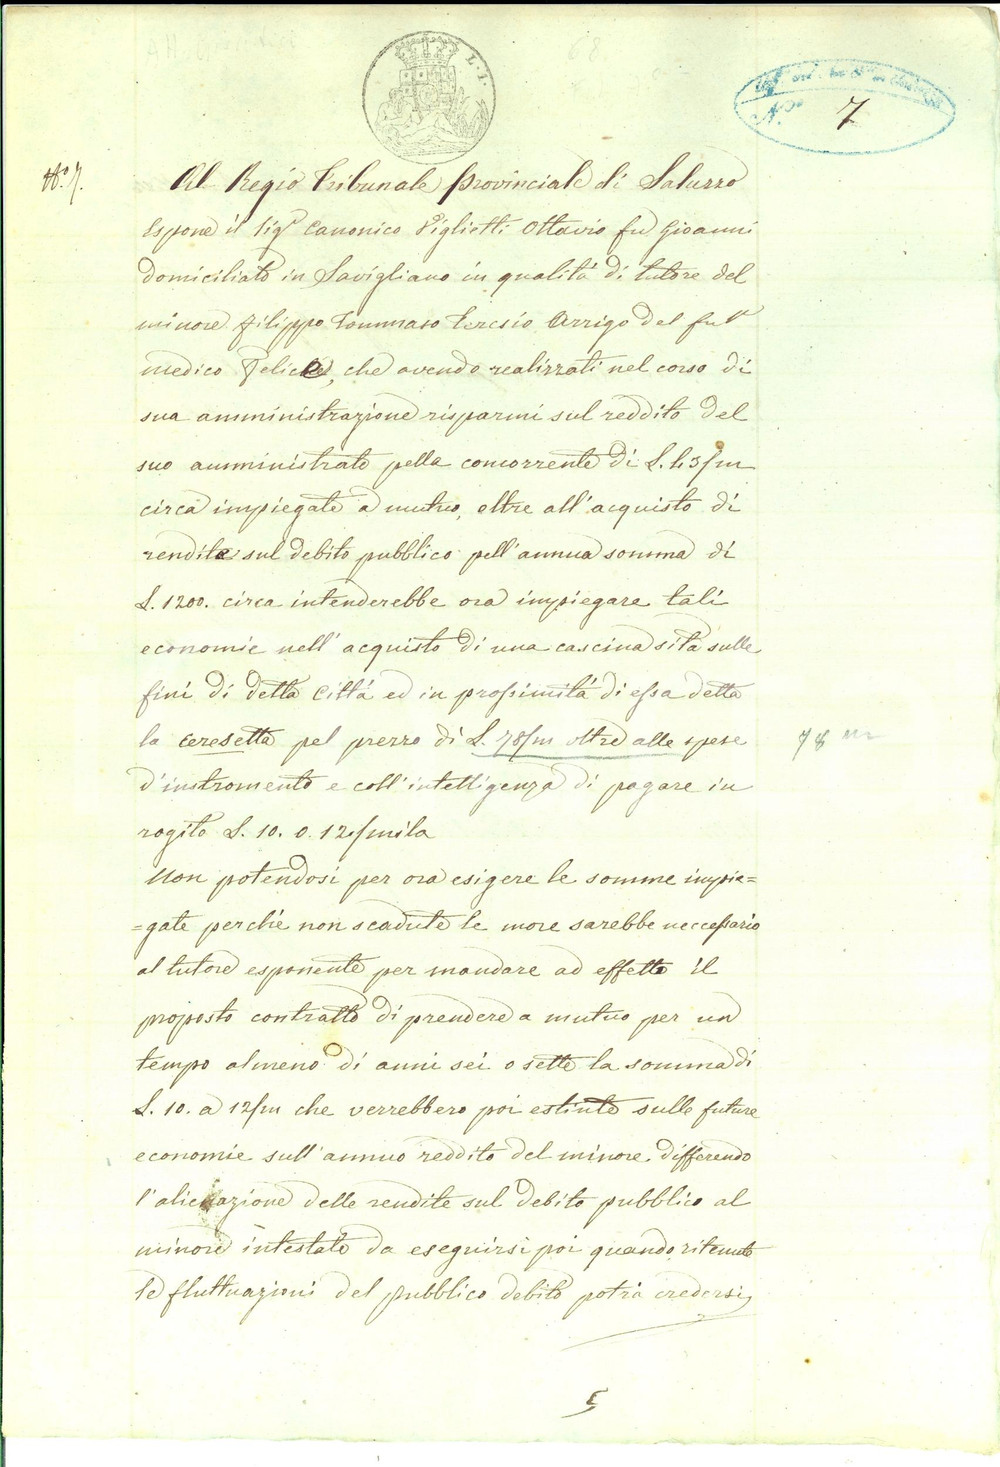 L. 1.
N.° 7
N.° 7.
Al Regio Tribunale Provinciale di Saluzzo
Espone il Sig.r Canonico Viglietti Ottavio fu Gioanni
domiciliato in Savigliano in qualità di tutore del
minore Filippo Tommaso Teresio Arrigo del fu
medico Felice, che avendo realizzati nel corso di
sua amministrazione risparmi sul reddito del
suo amministrato pella concorrente di L. 43/m
circa impiegate a mutuo, oltre all'acquisto di
rendite sul debito pubblico pell'annua somma di
L. 1200. circa intenderebbe ora impiegare tali
economie nell'acquisto di una cascina sita sulle
fini di detta Città ed in prossimità di essa detta
la Ceresetta pel prezzo di L. 78/m oltre alle spese
78 m
d'instromento e coll'intelligenza di pagare in
rogito L. 10. o 12/mila
Non potendosi per ora esigere le somme impie=
=gate perché non scadute le more sarebbe neccessario
al tutore esponente per mandare ad effetto il
proposto contratto di prendere a mutuo per un
tempo almeno di anni sei o sette la somma di
L. 10. a 12/m che verrebbero poi estinte sulle future
economie sull'annuo reddito del minore. differendo
l'alienazione delle rendite sul debito pubblico al
minore intestate da eseguirsi poi quando ritenute
le fluttuazioni del pubblico debito potrà credersi